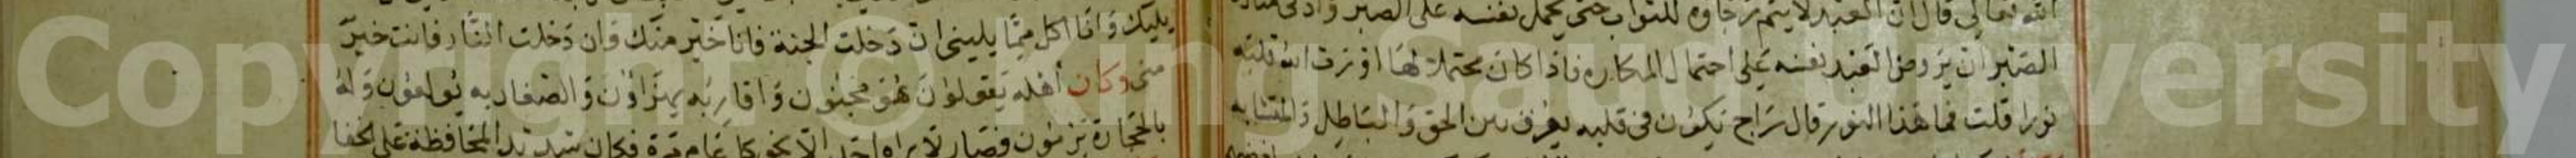 الله تعالى قال ان العبد لا يتم رجاوه للثواب حتى يحمل نفسه على الصبر وادنى
الصبر ان يروض العبد نفسه على احتمال المكاره فاذا كان محتملا لها اورث الله قلبه
نورا قلت فما هذا النور قال سراج يكون في قلبه يفرق بين الحق والباطل والمتشابه
يليك وانا اكل مما يليني ان دخلت الجنة فانا خير منك وان دخلت النار فانت خير
مني وكان اهله يقولون هو مجنون واقاربه يهزاون والصغار به يولعون وله
بالحجارة يرمون فصار لا يراه احد الا نحو كل عام مرة فكان شديد المحافظة على
Copyright © King Saud University